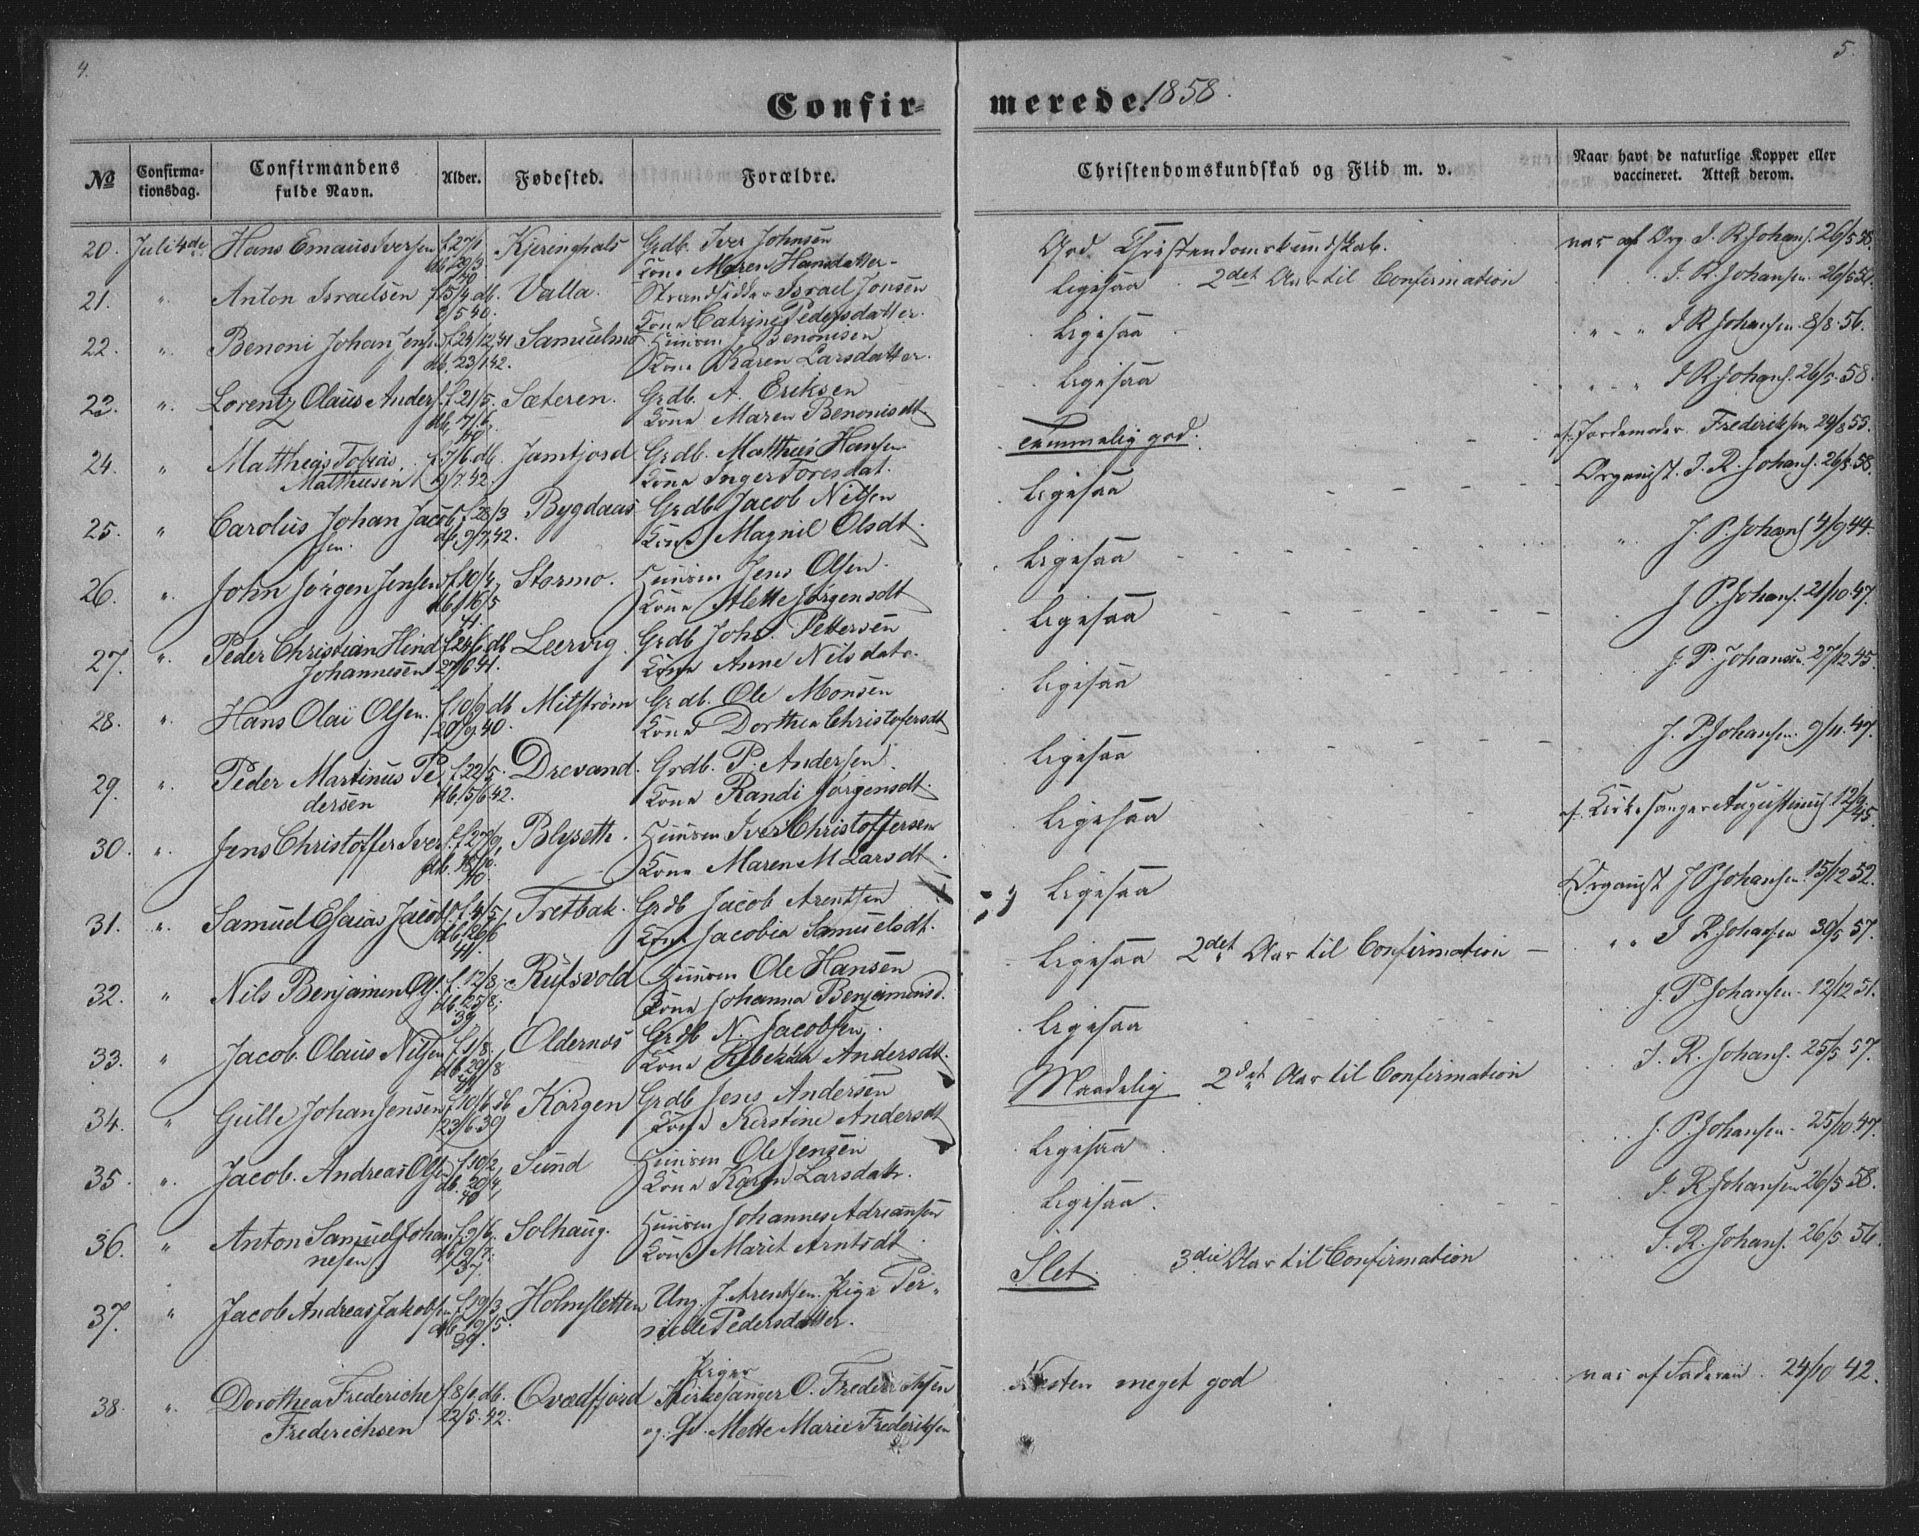 4.
5.
Confir-
merede. 1858.
No
Confirma-
tionsdag.
Confirmandens
fulde Navn.
Alder.
Fødested.
Forældre.
Christendomskundskab og Flid m. v.
Naar havt de naturlige Kopper eller
vaccineret. Attest derom.
20. Juli 4de Hans Emaus Iversen Kjeringhals Grdb. Iver Johnsen
Kone Maren Hansdatter
God Christendomskundskab.
vac af Org. J. P. Johans. 26/5 58.
21. " Anton Israelsen f. 5/4. db. Valla. Strandsidder Israel Jonsen
2/5 40. Kone Catrine Pedersdatter.
Ligesaa 2det Aar til Confirmation
J. P. Johansen. 26/5 58.
22. " Benoni Johan Jens f. 24/12 41 Samuelmo Huusm J. Benonisen
db. 23/1 42. Kone Karen Larsdatter.
Ligesaa
J P Johansen. 8/8. 56.
23. " Lorentz Olaus Anders f. 21/5. Sæteren. Grdb. A. Eriksen
db. 7/6 40. Kone Maren Benonisdt
Ligesaa
J P Johans. 26/5. 58.
24. " Matthias Tobias f. 7/6. db. Jamtjord Grdb. Mathies Hansen
Mathiesen 42. Kone Inger Toresdat.
Temmelig god.
af Jordemoder Frederiksen 24/8 55.
25. " Carolus Johan Jacob f. 28/3 Bygdaas Grdb. Jacob Nilsen
sen. db. 9/7. 42. Kone Magnil Olsdt.
Ligesaa
Organist. J. P. Johans. 26/5. 58.
26. " John Jørgen Jensen f. 10/4, Stormo. Huusm Jens Olsen.
db. 16/5 41. Kone Alette Jørgensdt
Ligesaa
J. P. Johans 4/9 44.
27. " Peder Christian Hind f. 24/6. db Leervig. Grdb. Johs. Pettersen
Johannesen 27/6 41. Kone Anne Nilsdatr.
Ligesaa
J P. Johans. 21/10. 47.
28. " Hans Olai Olsen. f. 10/9. db Mitstrøm Grdb. Ole Monsen
20/9. 40. Kone Dorthea Christofersdt
Ligesaa
J. P. Johansen. 27/12 45.
29. " Peder Martinus Pe f. 22/5. Drevand. Grdb. P. Andersen
dersen db. 5/6 42. Kone Randi Jørgensdt.
Ligesaa
J. P. Johansen. 9/11. 47.
30. " Jens Christoffer Iver f. 27/9, Blyseth. Huusm Iver Christoffersen
db. 40 Kone Maren M Larsdt
Ligesaa
af. Kirkesanger Augustinus 12/9 45.
31. " Samuel Esaias Jacob f. 4/5 Tretbak. Grdb Jacob Arentsen
db. 26/6 41. Kone Jacobia Samuelsdt.
Ligesaa
Organist J P Johansen. 15/12 52.
32. " Nils Benjamin Ols. f. 12/8. Rufsvold Huusm Ole Hansen
db. 25/8, 39 Kone Johanna Benjaminsd.
Ligesaa 2det Aar til Confirmation
" " J P. Johansen 30/5 57.
33. " Jacob Olaus Nilsen f. 1/8. Oldernes Grdb N. Jacobsen
db. 29/8 Kone Rebekka Andersdt.
Ligesaa
J. P. Johansen. 12/12 51.
34. " Gulle Johan Jensen f. 10/6. db Korgen Grdb Jens Andersen
23/6 39 Kone Kerstine Andersdt
Maadelig 2det Aar til Confirmation
J. P. Johans. 25/5 57.
35. " Jacob. Andreas Ols f. 10/2, Sund Huusm Ole Jensen
db. 20/4, 40 Kone Karen Larsdatr.
Ligesaa
J. P. Johansen. 25/10. 47.
36. " Anton Samuel Johan f. 9/6. Solhaug. Huusm Johannes Adriansen
nesen db. 9/7. 37. Kone Marit Arntsdt
Ligesaa.
J. P. Johansen 26/5 58.
37. " Jacob Andreas Jakobsen f. 19/3 Holmsletten Ung. J. Arentsen. Pige Per-
db. 19/5. 39. nille Pedersdatter.
Slet. 3die Aar til Confirmation
J. P. Johans. 26/5 56.
Piger
38. " Dorothea Frederiche f. 8/6. db. Qvædfjord Kirkesanger O. Frederiksen
Frederichsen 22/5. 42. og Mette Marie Frederiksen
Næsten meget god
vac af Faderen 24/10 42.